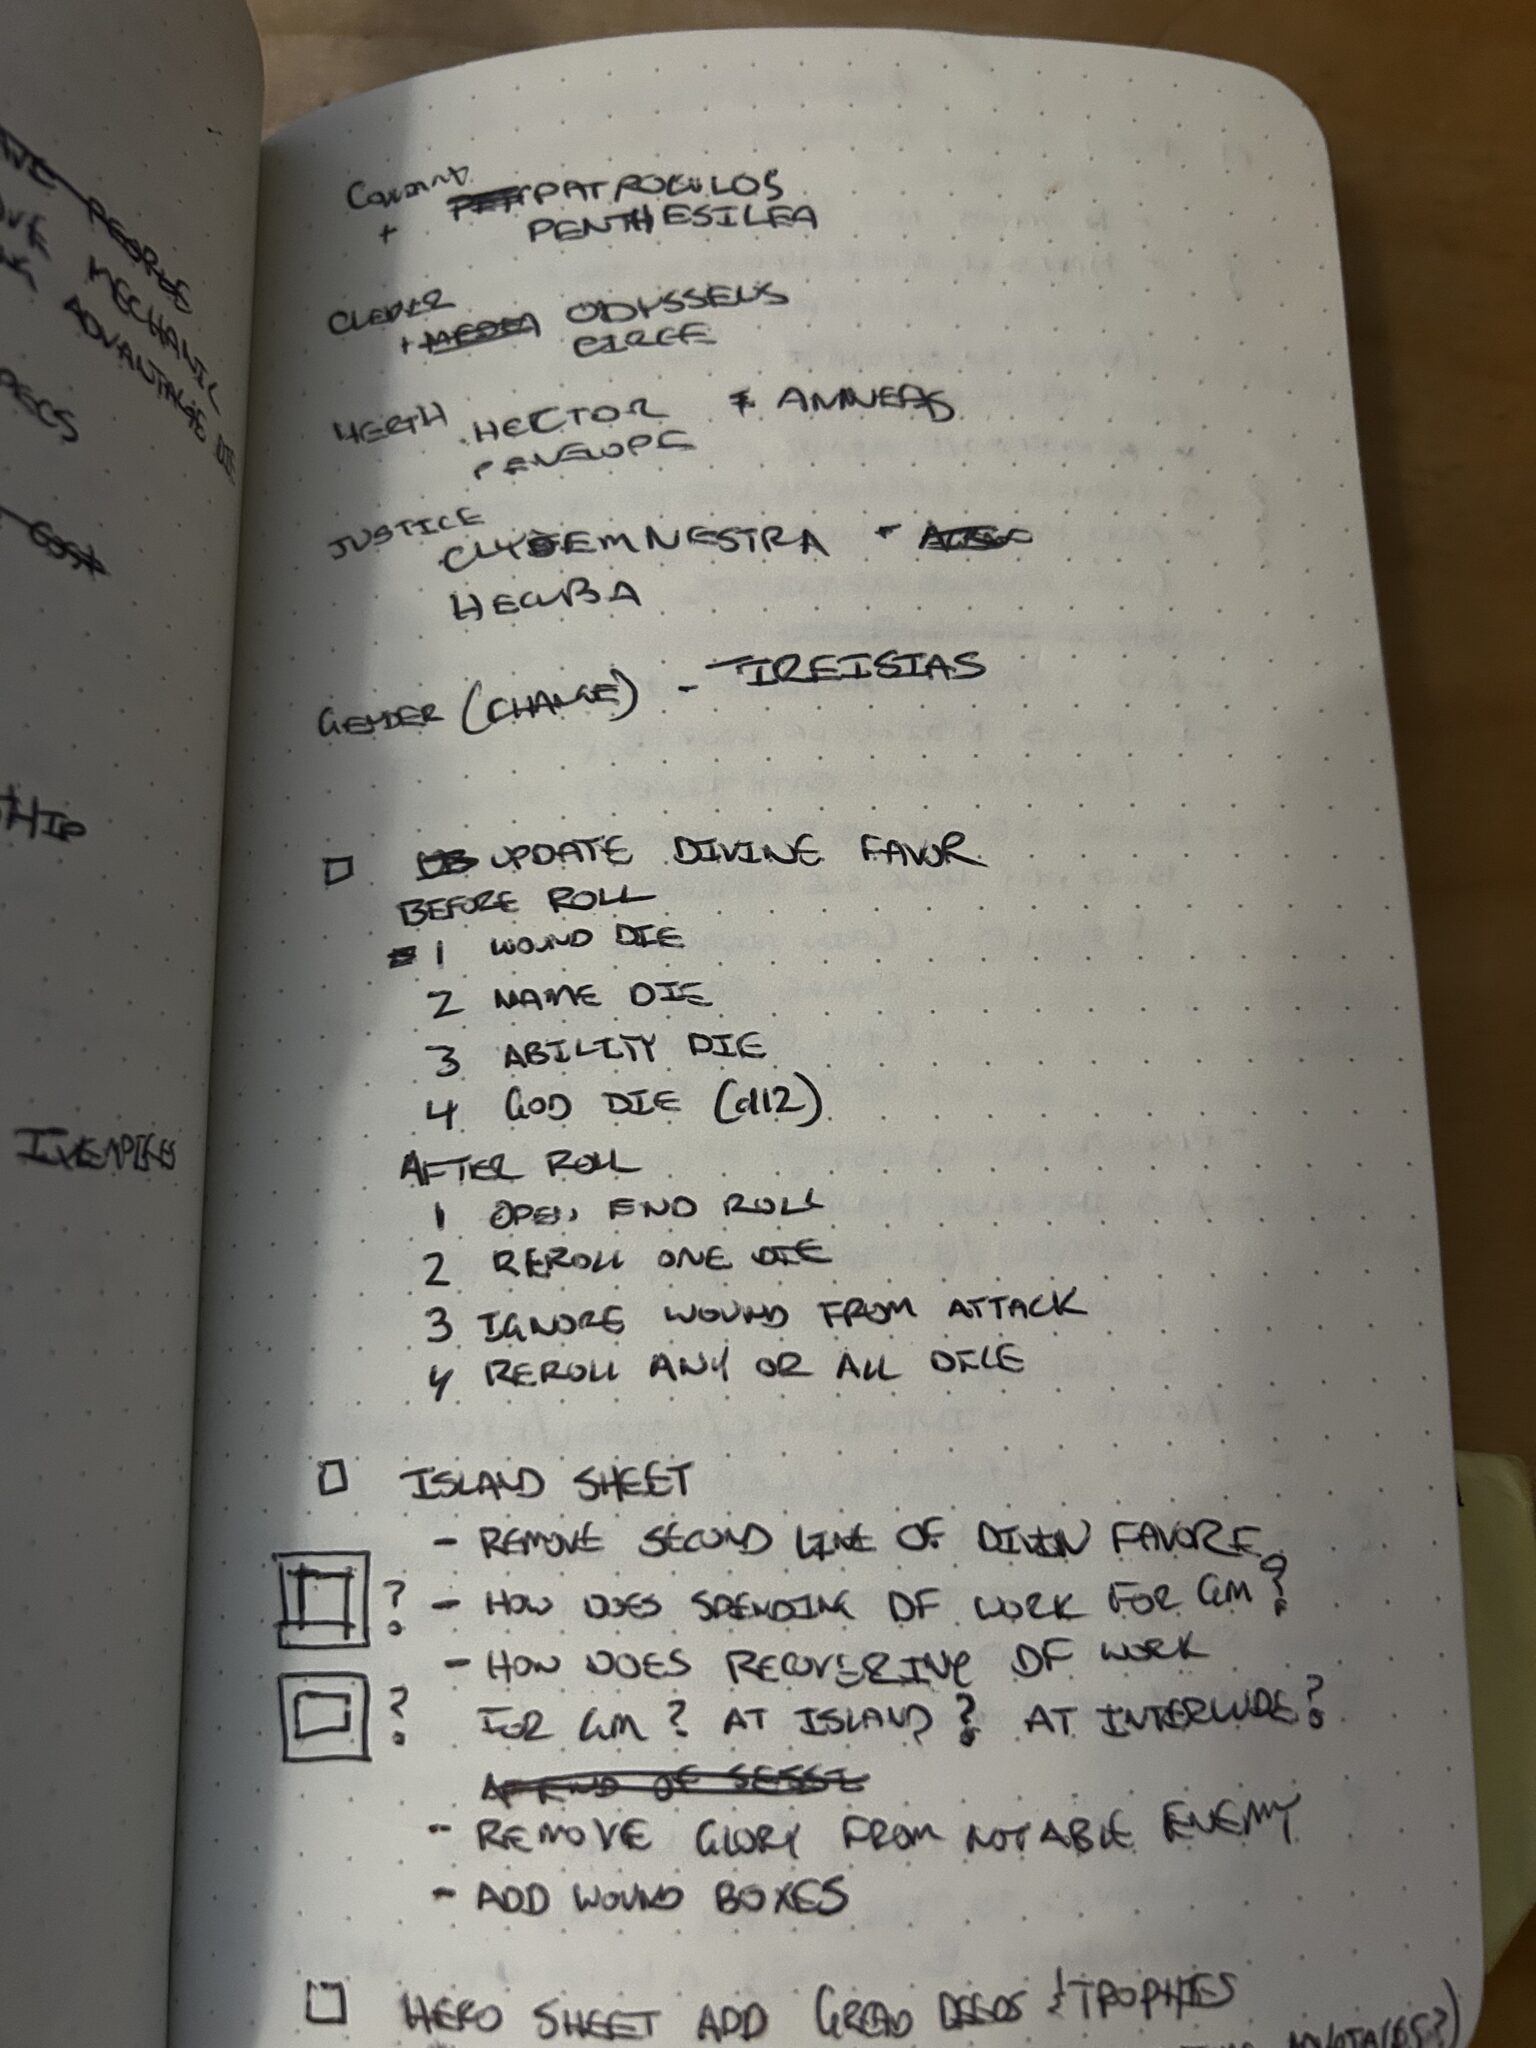 PATROCULOS
+ PENTHESILEA
CLEVER
+ MEDEA ODYSSEUS
CIRCE
HECTOR + ANNEAS
PENELOPE
JUSTICE
CLYTEMNESTRA
HECUBA
GENDER (CHANGE) - TIREISIAS
UPDATE DIVINE FAVOR
BEFORE ROLL
1 WOUND DIE
2 NAME DIE
3 ABILITY DIE
4 GOD DIE (d12)
AFTER ROLL
1 OPEN END ROLL
2 REROLL ONE DIE
3 IGNORE WOUND FROM ATTACK
4 REROLL ANY OR ALL DICE
ISLAND SHEET
- REMOVE SECOND LINE OF DIVIN FAVORE
? - HOW DOES SPENDING DF WORK FOR GM?
- HOW DOES RECOVERING DF WORK
? FOR GM? AT ISLAND? AT INTERLUDE?
END OF SESSI
- REMOVE GLORY FROM NOTABLE ENEMY
- ADD WOUND BOXES
HERO SHEET ADD DEEDS & TROPHIES
MECHANIC
ADVANTAGE DIE